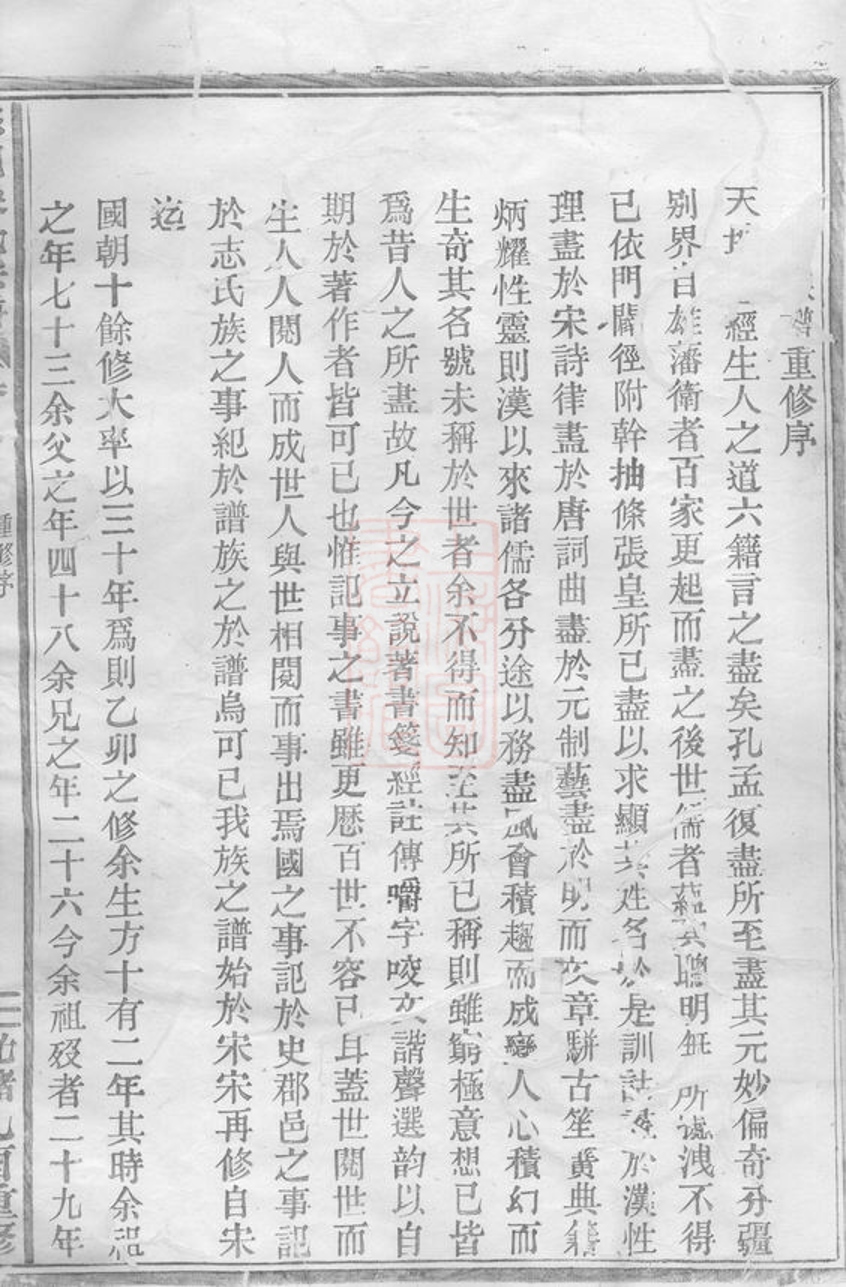 譜重修序
天 經生人之道六籍言之盡矣孔孟復盡所至盡其元妙偏奇分疆
別界自雄藩衛者百家更起而盡之後世儒者 其聰明無所 洩不得
已依門闢徑附幹抽條張皇所已盡以求顯其姓名於是訓詁盡於漢性
理盡於宋詩律盡於唐詞曲盡於元制藝盡於明而文章駢古笙簧典籍
炳耀性靈則漢以來諸儒各分途以務盡風會積趨而成變人心積幻而
生奇其名號未稱於世者余不得而知至其所已稱則雖窮極意想已皆
爲昔人之所盡故凡今之立說著書箋經註傳嚼字咬文諧聲選韵以自
期於著作者皆可已也惟記事之書雖更歷百世不容已耳蓋世閱世而
生人人閱人而成世人與世相閱而事出焉國之事記於史郡邑之事記
於志氏族之事紀於譜族之於譜烏可已我族之譜始於宋宋再修自宋
迄
國朝十餘修大率以三十年爲則乙卯之修余生方十有二年其時余祖
之年七十三余父之年四十八余兄之年二十六今余祖歿者二十九年
重修序